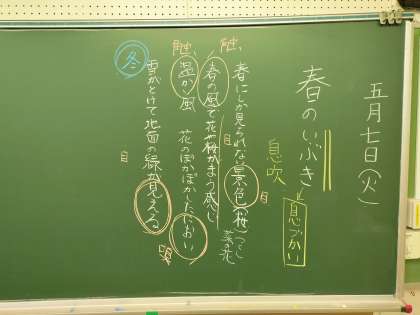 五月七日(火)
春のいぶき
息づかい
息吹
春にしか見られない景色(桜 つくし 菜の花
目
目
触
春の風で花や桜がまう感じ
触
温かい風
花のぽかぽかしたにおい
鼻
冬
雪がとけて地面の緑が見える
目